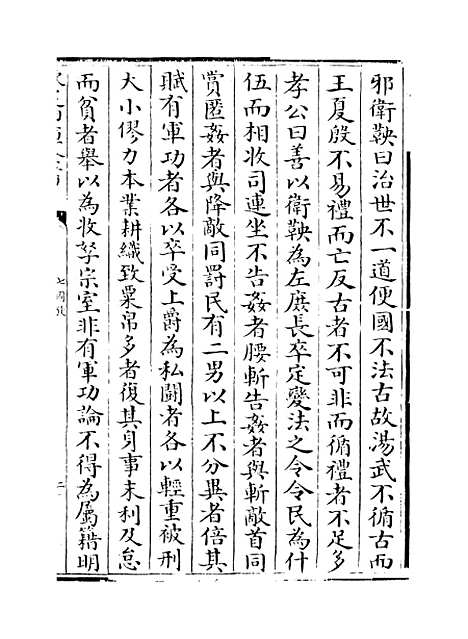 邪衛鞅曰治世不一道便國不法古故湯武不循古而
王夏殷不易禮而亡反古者不可非而循禮者不足多
孝公曰善以衛鞅為左庶長卒定變法之令令民為什
伍而相收司連坐不告姦者腰斬告姦者與斬敵首同
賞匿姦者與降敵同罰民有二男以上不分異者倍其
賦有軍功者各以卒受上爵為私鬭者各以輕重被刑
大小僇力本業耕織致粟帛多者復其身事末利及怠
而貧者舉以為收孥宗室非有軍功論不得為屬籍明
七國考